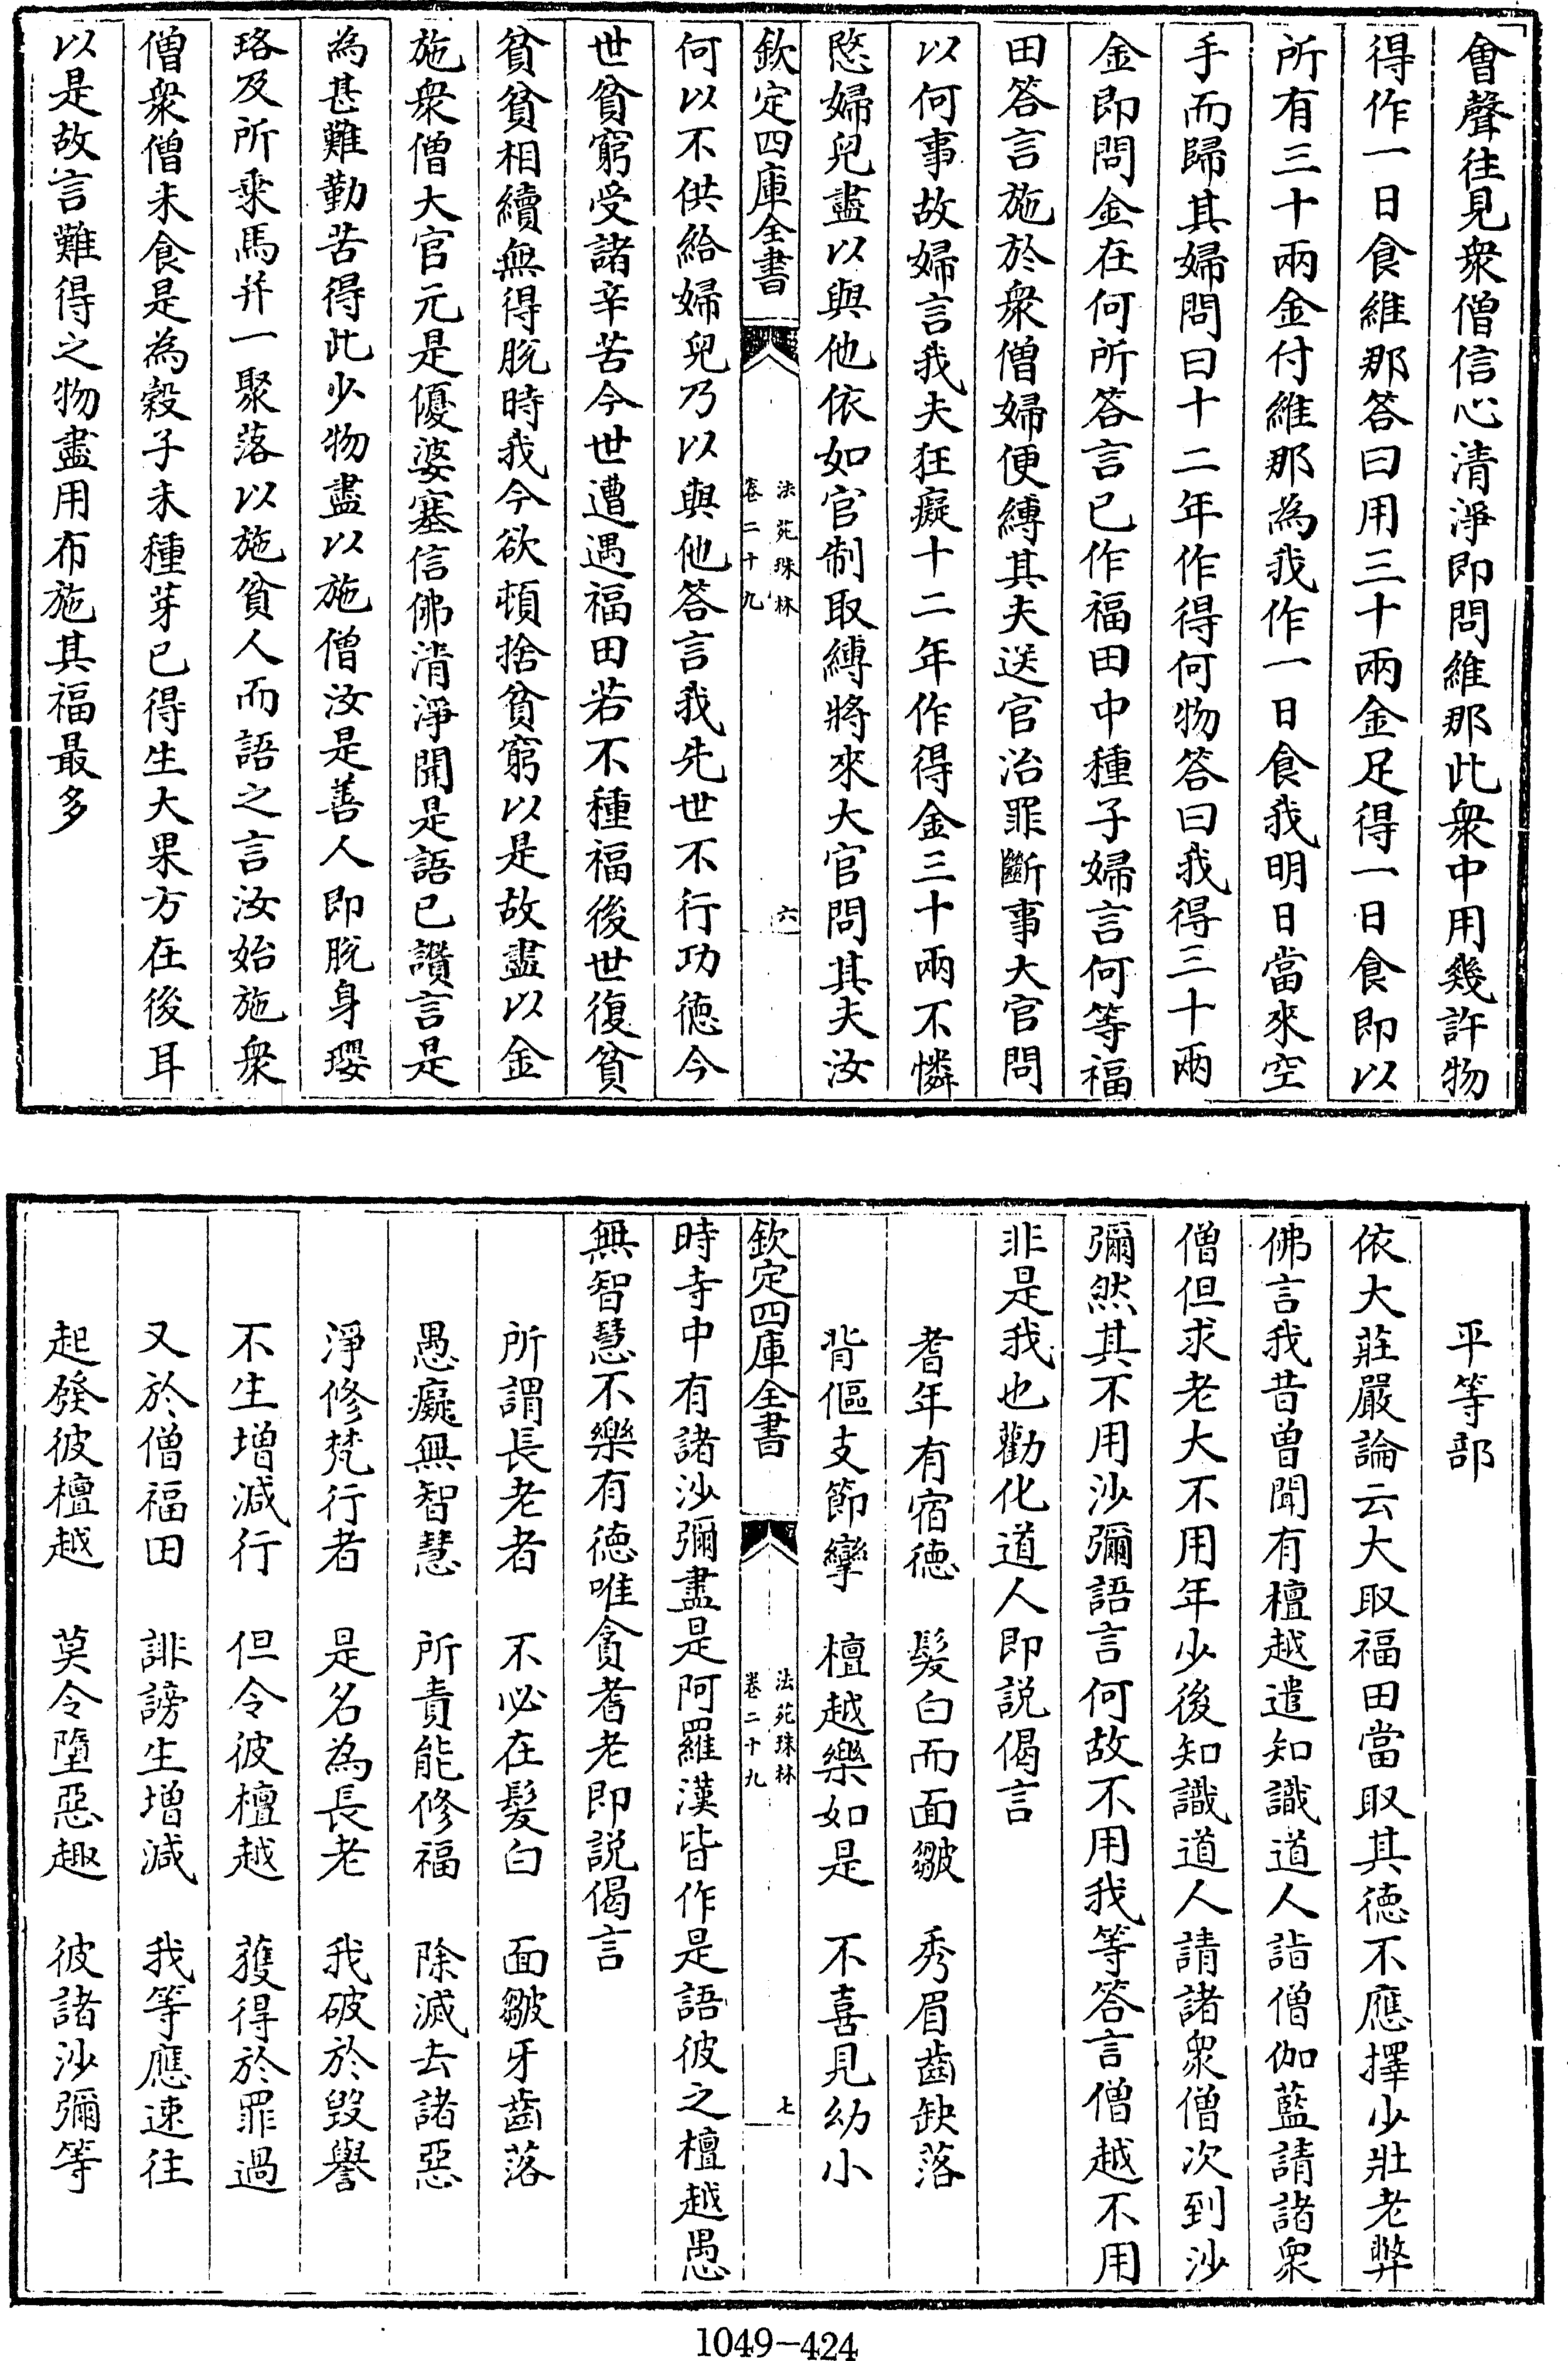 會聲往見衆僧信心清淨即問維那此衆中用幾許物
得作一日食維那答曰用三十兩金足得一日食即以
所有三十兩金付維那為我作一日食我明日當來空
手而歸其婦問曰十二年作得何物答曰我得三十兩
金即問金在何所答言已作福田中種子婦言何等福
田答言施於衆僧婦便縛其夫送官治罪斷事大官問
以何事故婦言我夫狂癡十二年作得金三十兩不憐
愍婦兒盡以與他依如官制取縛將來大官問其夫汝
欽定四庫全書
法苑珠林
卷二十九
六
何以不供給婦兒乃以與他答言我先世不行功徳今
世貧窮受諸辛苦今世遭遇福田若不種福後世復貧
貧貧相續無得脫時我今欲頓捨貧窮以是故盡以金
施衆僧大官元是優婆塞信佛清淨聞是語已讚言是
為甚難勤苦得此少物盡以施僧汝是善人即脫身瓔
珞及所乘馬并一聚落以施貧人而語之言汝始施衆
僧衆僧未食是為穀子未種芽已得生大果方在後耳
以是故言難得之物盡用布施其福最多
平等部
依大莊嚴論云大取福田當取其徳不應擇少壯老弊
佛言我昔曾聞有檀越遣知識道人詣僧伽藍請諸衆
僧但求老大不用年少後知識道人請諸衆僧次到沙
彌然其不用沙彌語言何故不用我等答言僧越不用
非是我也勸化道人即説偈言
耆年有宿徳　髮白而面皺　秀眉齒缺落
背傴支節攣　檀越樂如是　不喜見幼小
欽定四庫全書
法苑珠林
卷二十九
七
時寺中有諸沙彌盡是阿羅漢皆作是語彼之檀越愚
無智慧不樂有徳唯貪耆老即説偈言
所謂長老者　不必在髮白　面皺牙齒落
愚癡無智慧　所責能修福　除滅去諸惡
淨修梵行者　是名為長老　我破於毀譽
不生增減行　但令彼檀越　獲得於罪過
又於僧福田　誹謗生增減　我等應速往
起發彼檀越　莫令墮惡趣　彼諸沙彌等
1049-424